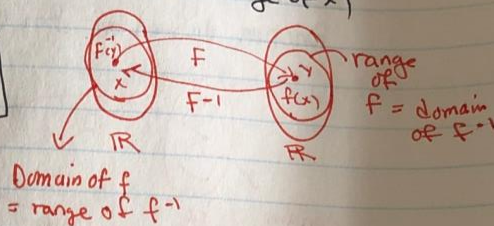 f⁻¹(y)
F
x
F-1
y
f(x)
ℝ
ℝ
range
of
f = domain
of f-1
Domain of f
= range of f-1